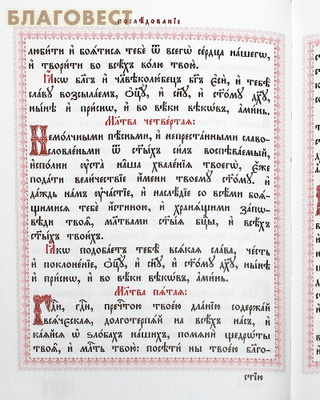 БЛАГОВЕСТ
послѣ́дованїе
люби́ти и҆ боѧ́тисѧ тебє̀ ѿ всегѡ̀ се́рдца на́шегѡ,
и҆ твори́ти во всѣ́хъ во́лю твою̀.
Ꙗ҆́кѡ бл҃гъ и҆ чл҃вѣколю́бецъ бг҃ъ є҆сѝ, и҆ тебѣ̀
сла́вꙋ возсыла́емъ, ѻ҆ц҃ꙋ̀, и҆ сн҃ꙋ, и҆ ст҃о́мꙋ дх҃ꙋ,
ны́нѣ и҆ при́снѡ, и҆ во вѣ́ки вѣкѡ́въ, а҆ми́нь.
Мл҃тва четве́ртаѧ:
Немо́лчными пѣ́сньми, и҆ непреста́нными славо-
сло́вленьми ѿ ст҃ы́хъ си́лъ воспѣва́емый,
и҆спо́лни ᲂу҆ста̀ на́ша хвале́нїѧ твоегѡ̀, є҆́же
пода́ти вели́чествїе и҆́мени твоемꙋ̀ ст҃о́мꙋ. и҆
да́ждь на́мъ ᲂу҆ча́стїе, и҆ наслѣ́дїе со всѣ́ми боѧ́-
щимисѧ тебє̀ и҆́стиною, и҆ хранѧ́щими за́пѡ-
вѣди твоѧ̑, мл҃твами ст҃ы́ѧ бц҃ы, и҆ всѣ́хъ
ст҃ы́хъ твои́хъ.
Ꙗ҆́кѡ подоба́етъ тебѣ̀ всѧ́каѧ сла́ва, че́сть
и҆ поклоне́нїе, ѻ҆ц҃ꙋ̀, и҆ сн҃ꙋ, и҆ ст҃о́мꙋ дх҃ꙋ, ны́нѣ
и҆ при́снѡ, и҆ во вѣ́ки вѣкѡ́въ, а҆ми́нь.
Мл҃тва пѧ́таѧ:
Гдⷭ҇и, гдⷭ҇и, преч҃тою твое́ю дла́нїю содержа́й
всѧ́чєскаѧ, долготерпѧ́й на всѣ́хъ на́съ, и҆
ка́ѧйсѧ ѡ҆ ѕло́бахъ на́шихъ, помѧнѝ щедрѡ́ты
твоѧ̑, и҆ мл҃ть твою̀: посѣтѝ ны̀ твое́ю бл҃го-
стїю